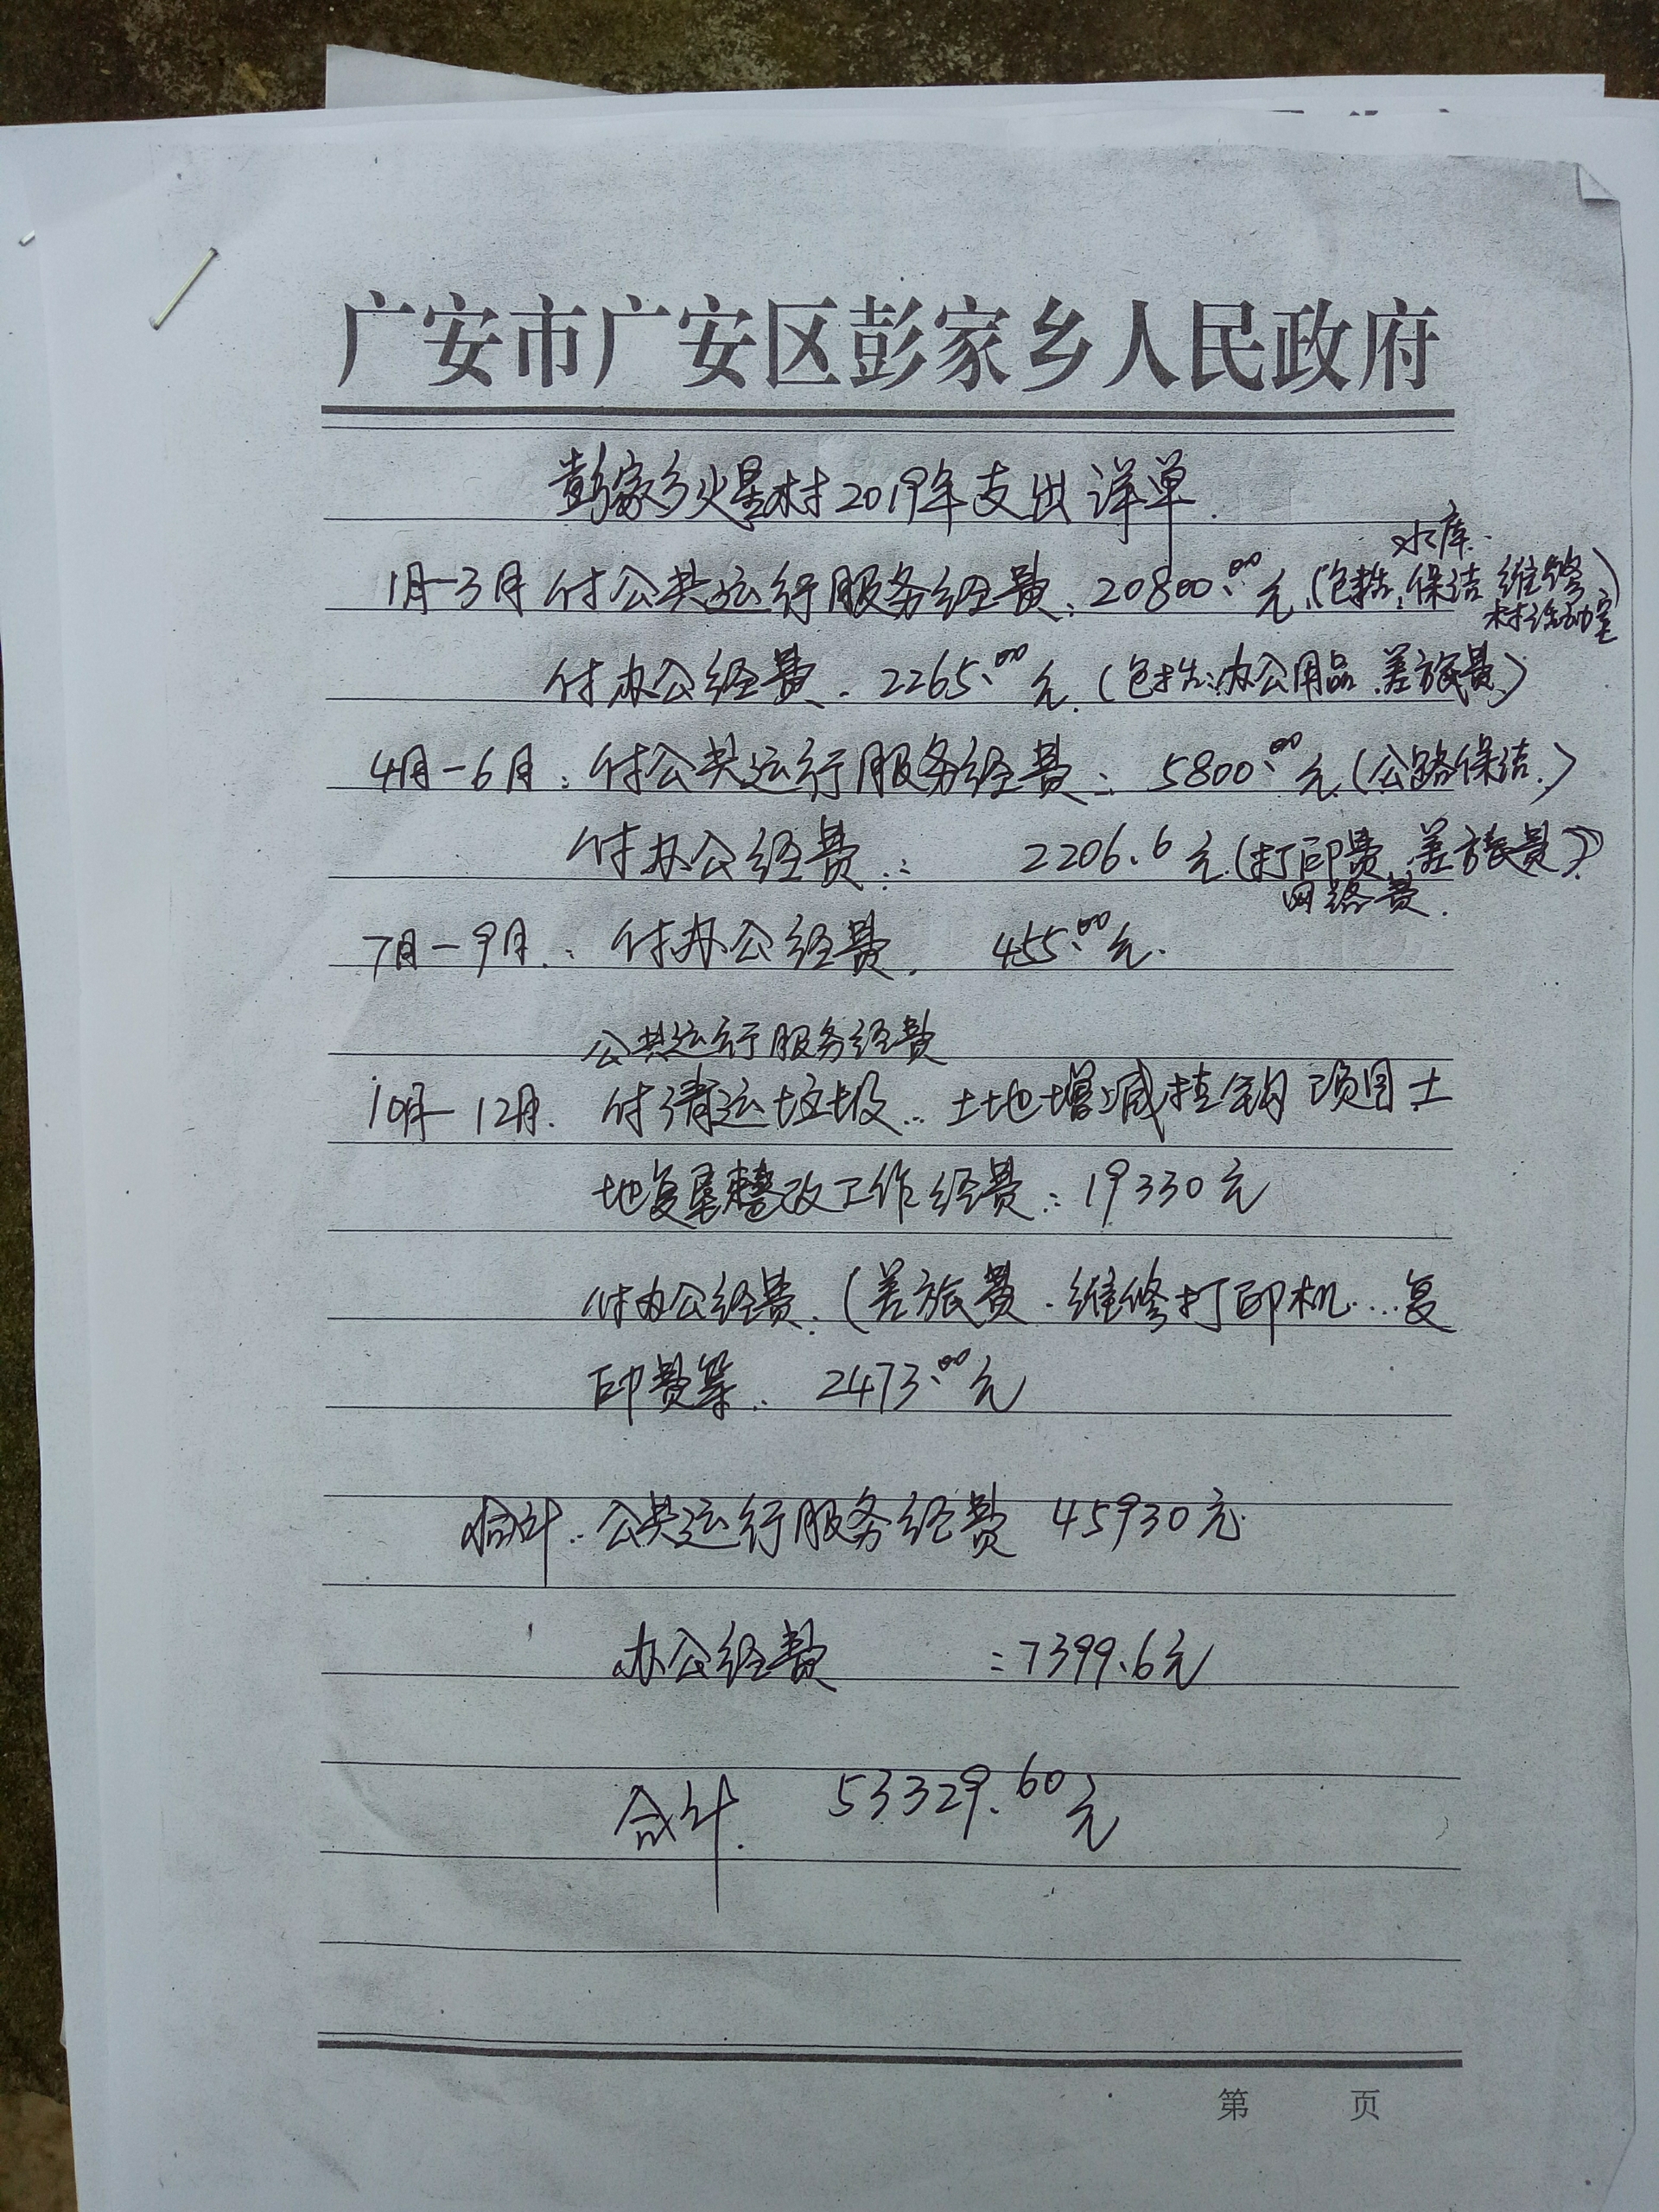 广安市广安区彭家乡人民政府
彭家乡火星村2019年支出详单.
水库.
1月-3月付公共运行服务经费:20800.00元.(包括:保洁 维修)
村活动室
付办公经费.2265.00元.(包括:办公用品 差旅费)
4月-6月:付公共运行服务经费:5800.00元(公路保洁.)
付办公经费: 2206.6元.(打印费.差旅费)
网络费.
7月-9月.:付办公经费. 455.00元.
公共运行服务经费
10月-12月.付清运垃圾..土地增减挂钩项目土
地复垦整改工作经费:19330元
付办公经费.(差旅费.维修打印机....复
印费等.. 2473.00元
合计.公共运行服务经费 45930元
办公经费 :7399.6元
合计. 53329.60元
第 页